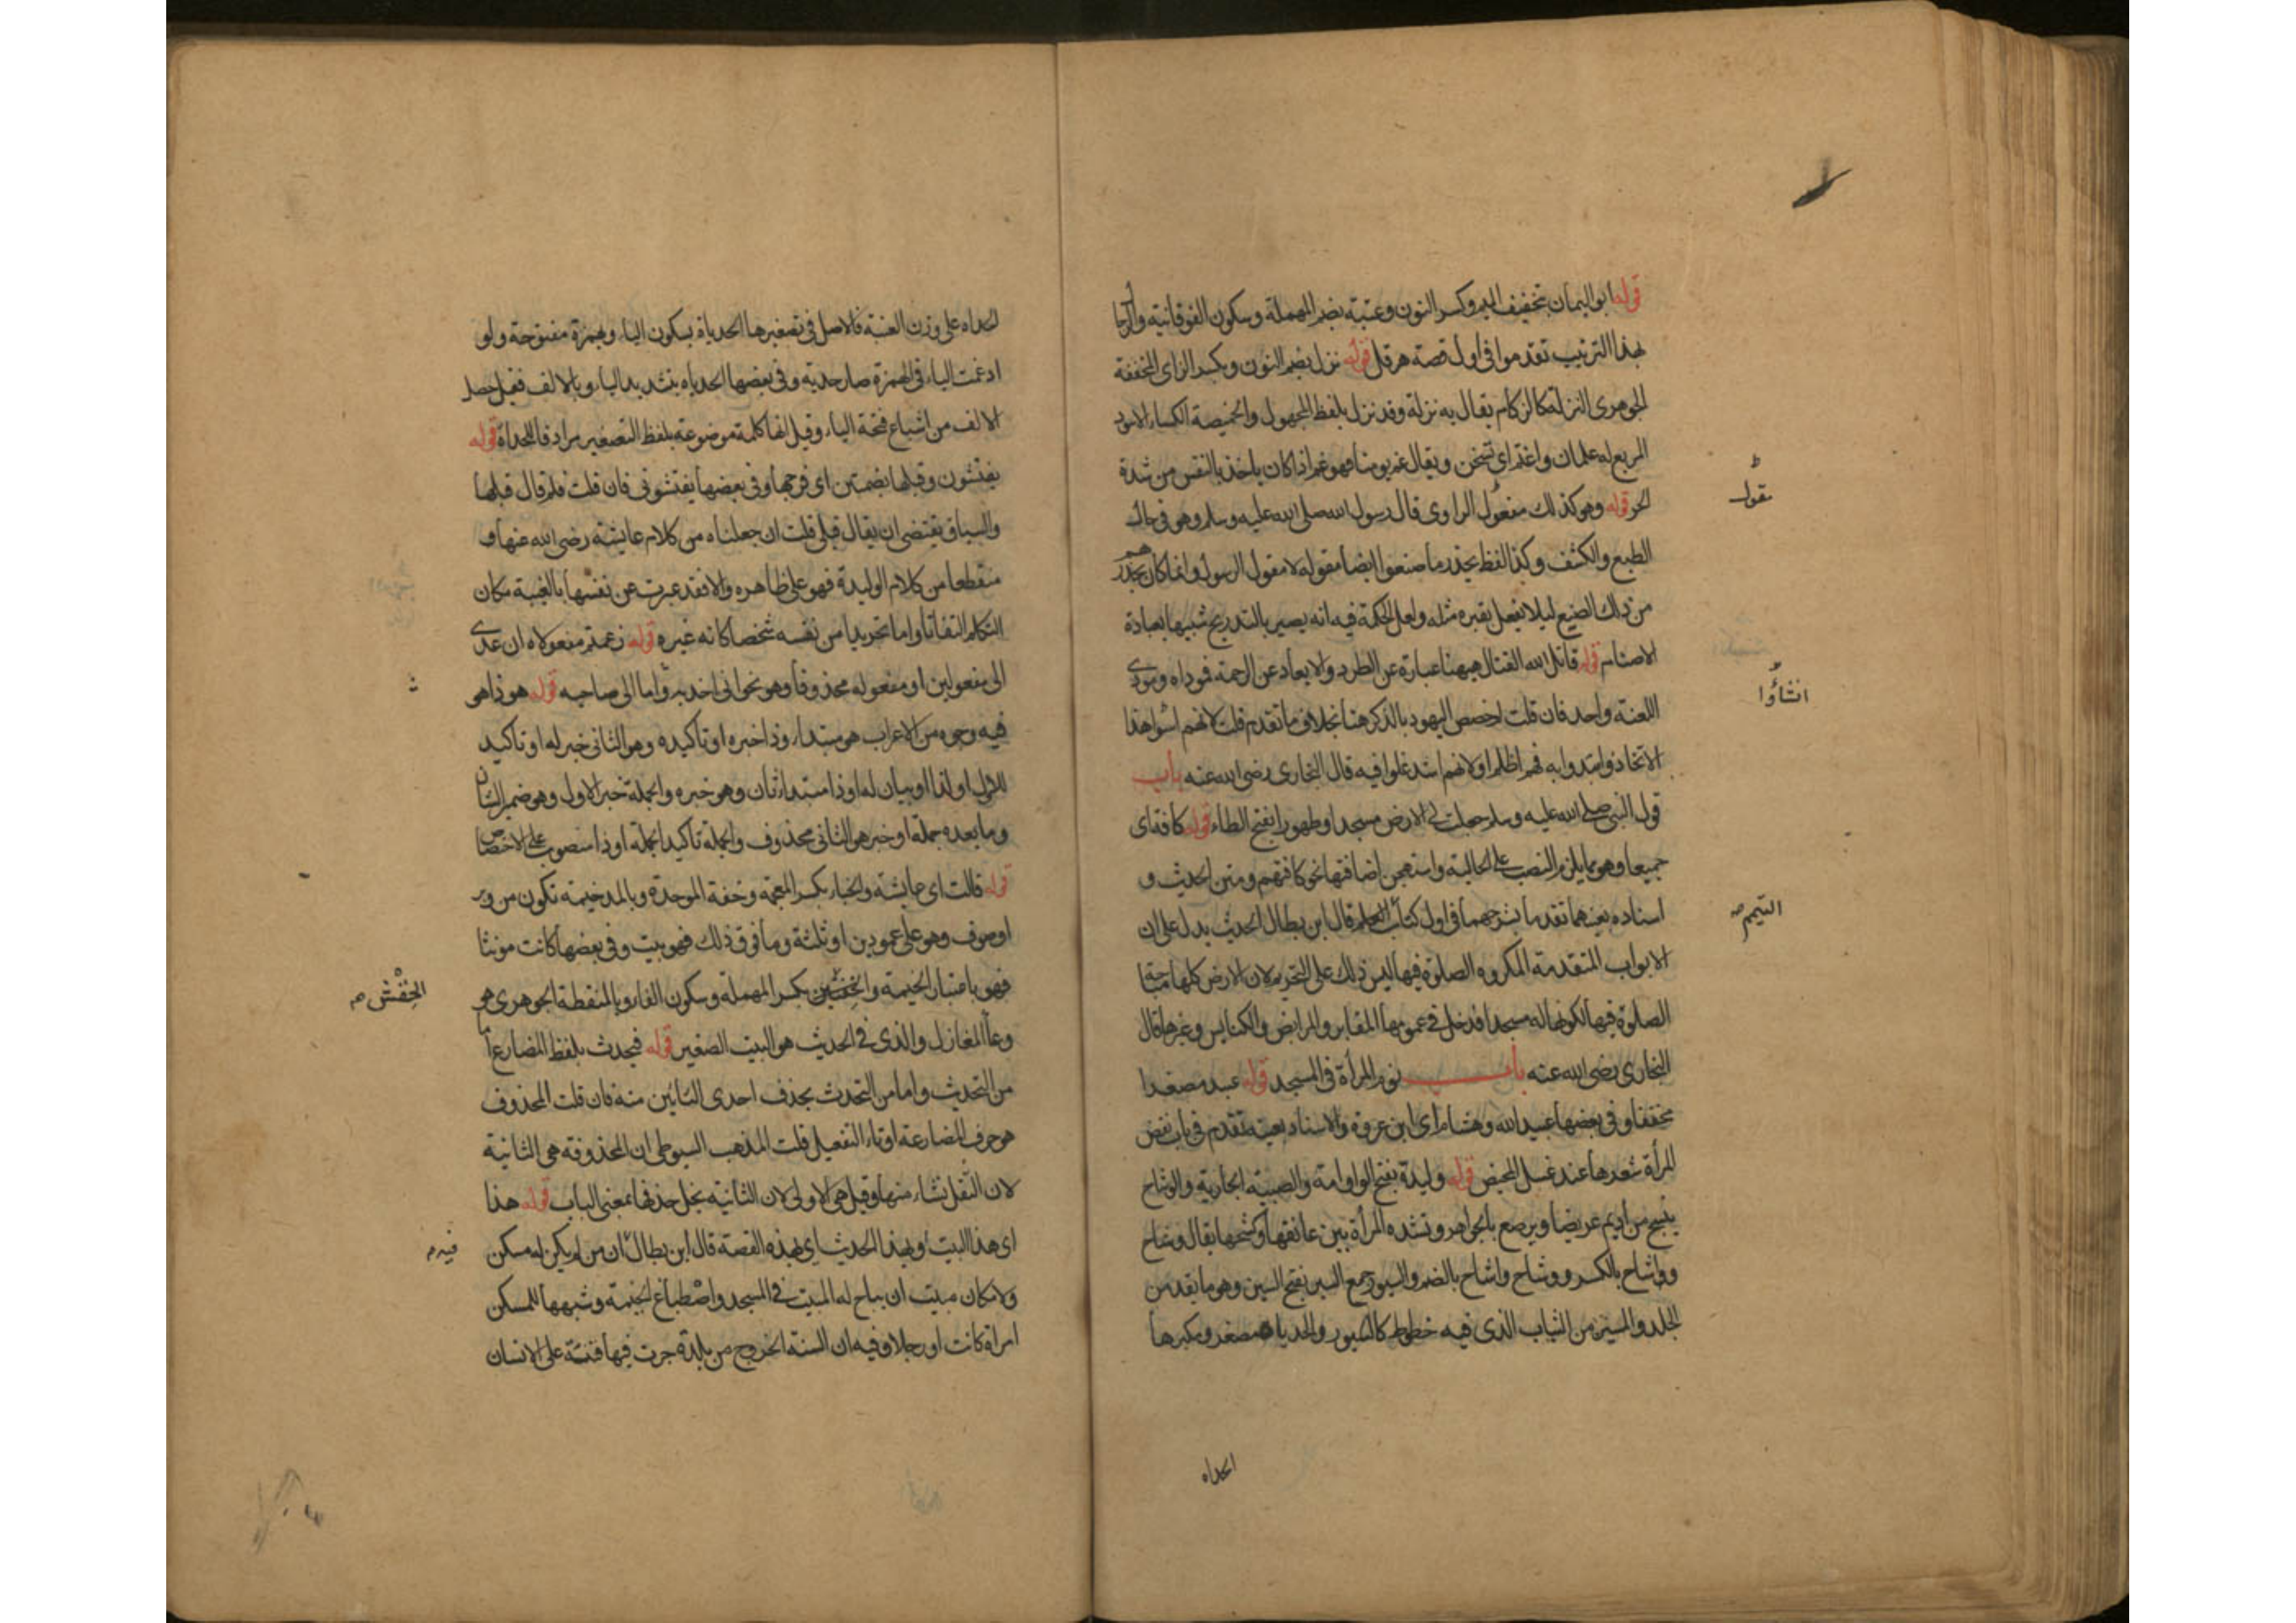 قوله ابو اليمان بتخفيف الميم وكسر النون وعتبة بضم المهملة وسكون الفوقانية واكثرها
بهذا الترتيب تقدموا في اول قصة هرقل قوله نزل بضم النون وبكسر الزاى المخففة
الجوهرى النزلة كالزكام يقال به نزلة وقد نزل بلفظ المجهول والخميصة الكساء الاسود
المربع له علمان واغتم اى تسخن ويقال غم يومنا فهو غم اذا كان ياخذ بالنفس من شدة
الحر قوله وهو كذلك مفعول الراوى قال رسول الله صلى الله عليه وسلم وهو في حال
مقول
الطبع والكشف وكذا لفظ يحذر ما صنعوا ايضا مقوله لا مقول الرسول وانما كان يحذرهم
من ذلك الصنيع ليلا يفعل بقبره مثله ولعل الحكمة فيه انه يصير بالتدريج شبيها بعبادة
الاصنام قوله قاتل الله القتال ههنا عبارة عن الطرد والابعاد عن الرحمة فموداه ومودى
اللعنة واحد فان قلت لم خصص اليهود بالذكر هنا بخلاف ما تقدم قلت لانهم اسسوا هذا
انشاؤا
الاتخاذ وابتدوا به فهم اظلم او لانهم اشد غلوا فيه قال البخارى رضى الله عنه باب
قول النبى صلى الله عليه وسلم جعلت لى الارض مسجدا وطهورا بفتح الطاء قوله كافة اى
جميعا وهو مما يلزم النصب على الحالية واستهجن اضافتها نحو كافتهم ومتن الحديث و
اسناده بعينهما تقدما بشرحهما في اول كتاب قال ابن بطال الحديث يدل على ان
التيمم صح
الابواب المتقدمة المكروه الصلوة فيها ليس ذلك على التحريم لان الارض كلها مباحة
الصلوة فيها لكونها له مسجدا فدخل في عمومها المقابر والمرابض والكنايس وغيرها قال
البخارى رضى الله عنه باب نوم المرأة في المسجد قوله عبيد مصغرا
مخففا وفي بعضها عبيد الله وهشام اى ابن عروة والاسناد بعينه تقدم في باب نقض
المرأة شعرها عند غسل المحيض قوله وليدة بفتح الواو امة والصبية الجارية والوشاح
ينسج من اديم عريضا ويرصع بالجواهر وتشده المرأة بين عاتقها وكشحها يقال وشاح
ووشاح بالكسر ووشاح واشاح بالضم والسيور جمع السير بفتح السين وهو ما يقد من
الجلد والمسير من الثياب الذى فيه خطوط كالسيور والحدياة مصغر ومكبرها
الحداه
الحداه على وزن العنبة فالاصل في تصغيرها الحدياة بسكون الياء وبهمزة مفتوحة ولو
ادغمت الياء في الهمزة صار حدية وفي بعضها الحدياه بتشديد الياء وبالالف فقيل حصل
الالف من اشباع فتحة الياء وقيل انها كلمة موضوعة بلفظ التصغير مرادفا للحداة قوله
يفتشون وقبلها بضمتين اى فرجها وفي بعضها يفتشونى فان قلت فلم قال قبلها
والسياق يقتضى ان يقال قبلى قلت ان جعلناه من كلام عايشة رضى الله عنها و
منقطعا من كلام الوليدة فهو على ظاهره والا فقد عبرت عن نفسها بالغيبة مكان
التكلم التفاتا واما تجريدا من نفسه شخصا كانه غيره قوله زعمتم مفعولاه ان عدى
الى مفعولين او مفعوله محذوفا وهو نحو انى اخذته واما الى صاحبه قوله هو ذا هو
فيه وجوه من الاعراب هو مبتداء وذا خبره او تاكيده وهو الثانى خبر له او تاكيد
للاول او لذا او بيان له او ذا مبتداء ثان وهو خبره والجملة خبر الاول وهو ضمير الشان
وما بعده جملة او خبر هو الثانى محذوف والجملة تاكيد الجملة او ذا منصوب على الاختصاص
قوله قالت اى عايشة والخباء بكسر المعجمة وخفة الموحدة وبالمد خيمة تكون من وبر
او صوف وهو على عمودين او ثلثة وما فوق ذلك فهو بيت وفي بعضها كانت مونثا
فهو باعتبار الخيمة والخفشين بكسر المهملة وسكون الفاء وبالمنقطة الجوهرى هو
الحِفْش صح
وعاء المغازل والذى في الحديث هو البيت الصغير قوله فتحدث بلفظ المضارع اما
من التحديث واما من التحدث بحذف احدى التائين منه فان قلت المحذوف
هو حرف المضارعة او تاء التفعيل قلت المذهب السيوطى ان المحذوفة هى الثانية
لان الثقل نشاء منها وقيل هى الاولى لان الثانية يخل حذفها بمعنى الباب قوله هذا
اى هذا البيت او بهذا الحديث اى بهذه القصة قال ابن بطال ان من لم يكن له مسكن
فيه م
ولا مكان مبيت ان يباح له المبيت في المسجد واصطباغ الخيمة وشبهها للمسكن
امراة كانت او رجلا وفيه ان السنة الخروج من بلدة جرت فيها فتنة على الانسان